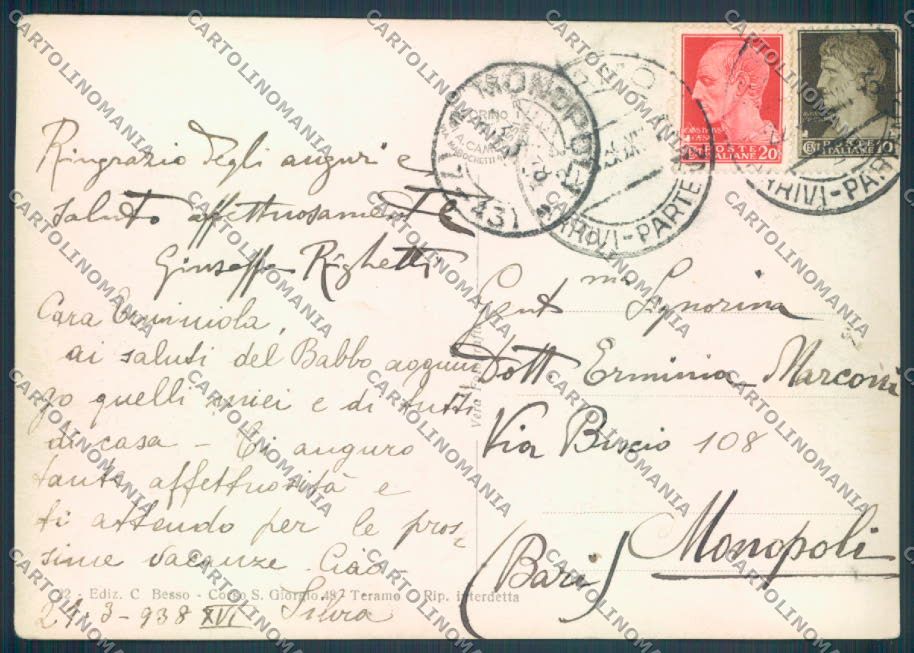 Ringrazio degli auguri e
saluto affettuosamente
Giuseppe Righetti
Cara Erminiola,
ai saluti del Babbo aggiun
go quelli miei e di tutti
di casa - Ti auguro
tanta affettuosità e
ti attendo per le pros=
sime vacanze. Ciao
Silvia
21-3-938 XVI
32 - Ediz. C. Besso - Corso S. Giorgio 48 - Teramo - Rip. interdetta
Vera
MONOPOLI
ARRIVI-PARTENZE
ARRIVI-PARTENZE
POSTE
ITALIANE 20
POSTE
ITALIANE 10
Gent.ma Signorina
Dott. Erminia Marconi
Via Biscio 108
Monopoli
(Bari)
CARTOLINOMANIA